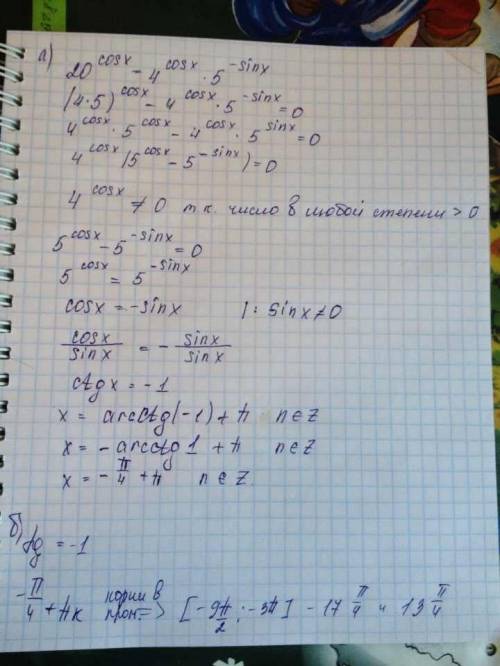 а) 20^cosx - 4^cosx · 5^-sinx
(4·5)^cosx - 4^cosx · 5^-sinx = 0
4^cosx · 5^cosx - 4^cosx · 5^sinx = 0
4^cosx (5^cosx - 5^-sinx) = 0
4^cosx ≠ 0 т.к. число в любой степени > 0
5^cosx - 5^-sinx = 0
5^cosx = 5^-sinx
cosx = -sinx |: sinx ≠ 0
cosx/sinx = - sinx/sinx
ctgx = -1
x = arcctg(-1) + π n∈Z
x = -arcctg1 + π n∈Z
x = -π/4 + π n∈Z.
б) tg = -1
-π/4 + πk корни в пром. => [-9π/2; -3π] - 17 π/4 и 13 π/4